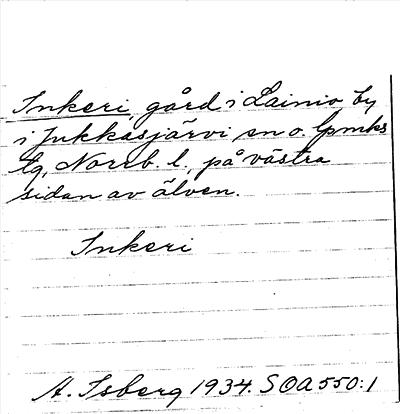 Inkeri, gård i Lainio by
i Jukkasjärvi sn o. lpmks
lg, Norrb. l., på västra
sidan av älven.
Inkeri
A. Isberg 1934. SOA 550:1